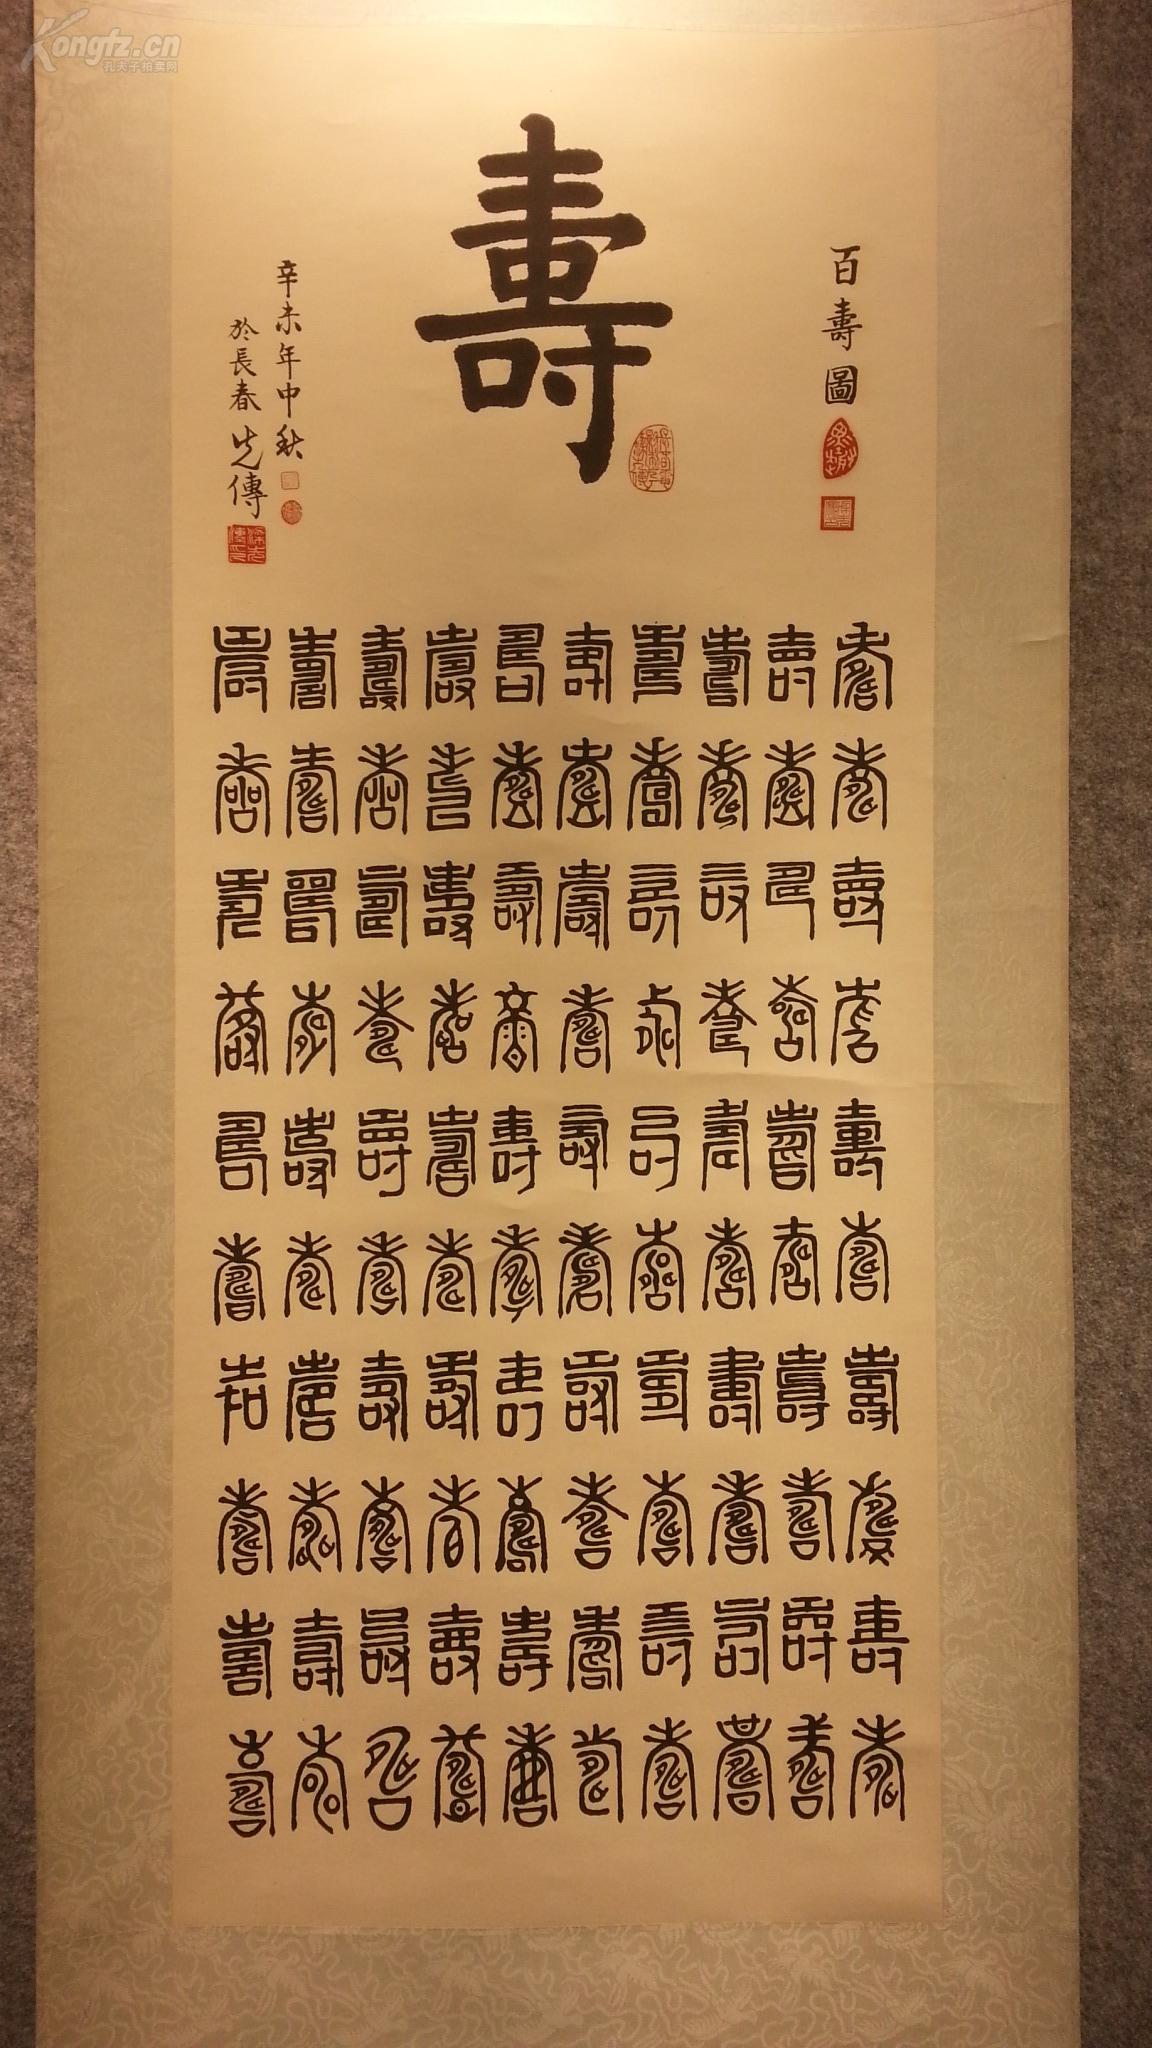 Kongfz.cn
孔夫子拍卖网
百壽圖
壽
辛未年中秋
於長春 先傳
壽壽壽壽壽壽壽壽壽壽
壽壽壽壽壽壽壽壽壽壽
壽壽壽壽壽壽壽壽壽壽
壽壽壽壽壽壽壽壽壽壽
壽壽壽壽壽壽壽壽壽壽
壽壽壽壽壽壽壽壽壽壽
壽壽壽壽壽壽壽壽壽壽
壽壽壽壽壽壽壽壽壽壽
壽壽壽壽壽壽壽壽壽壽
壽壽壽壽壽壽壽壽壽壽